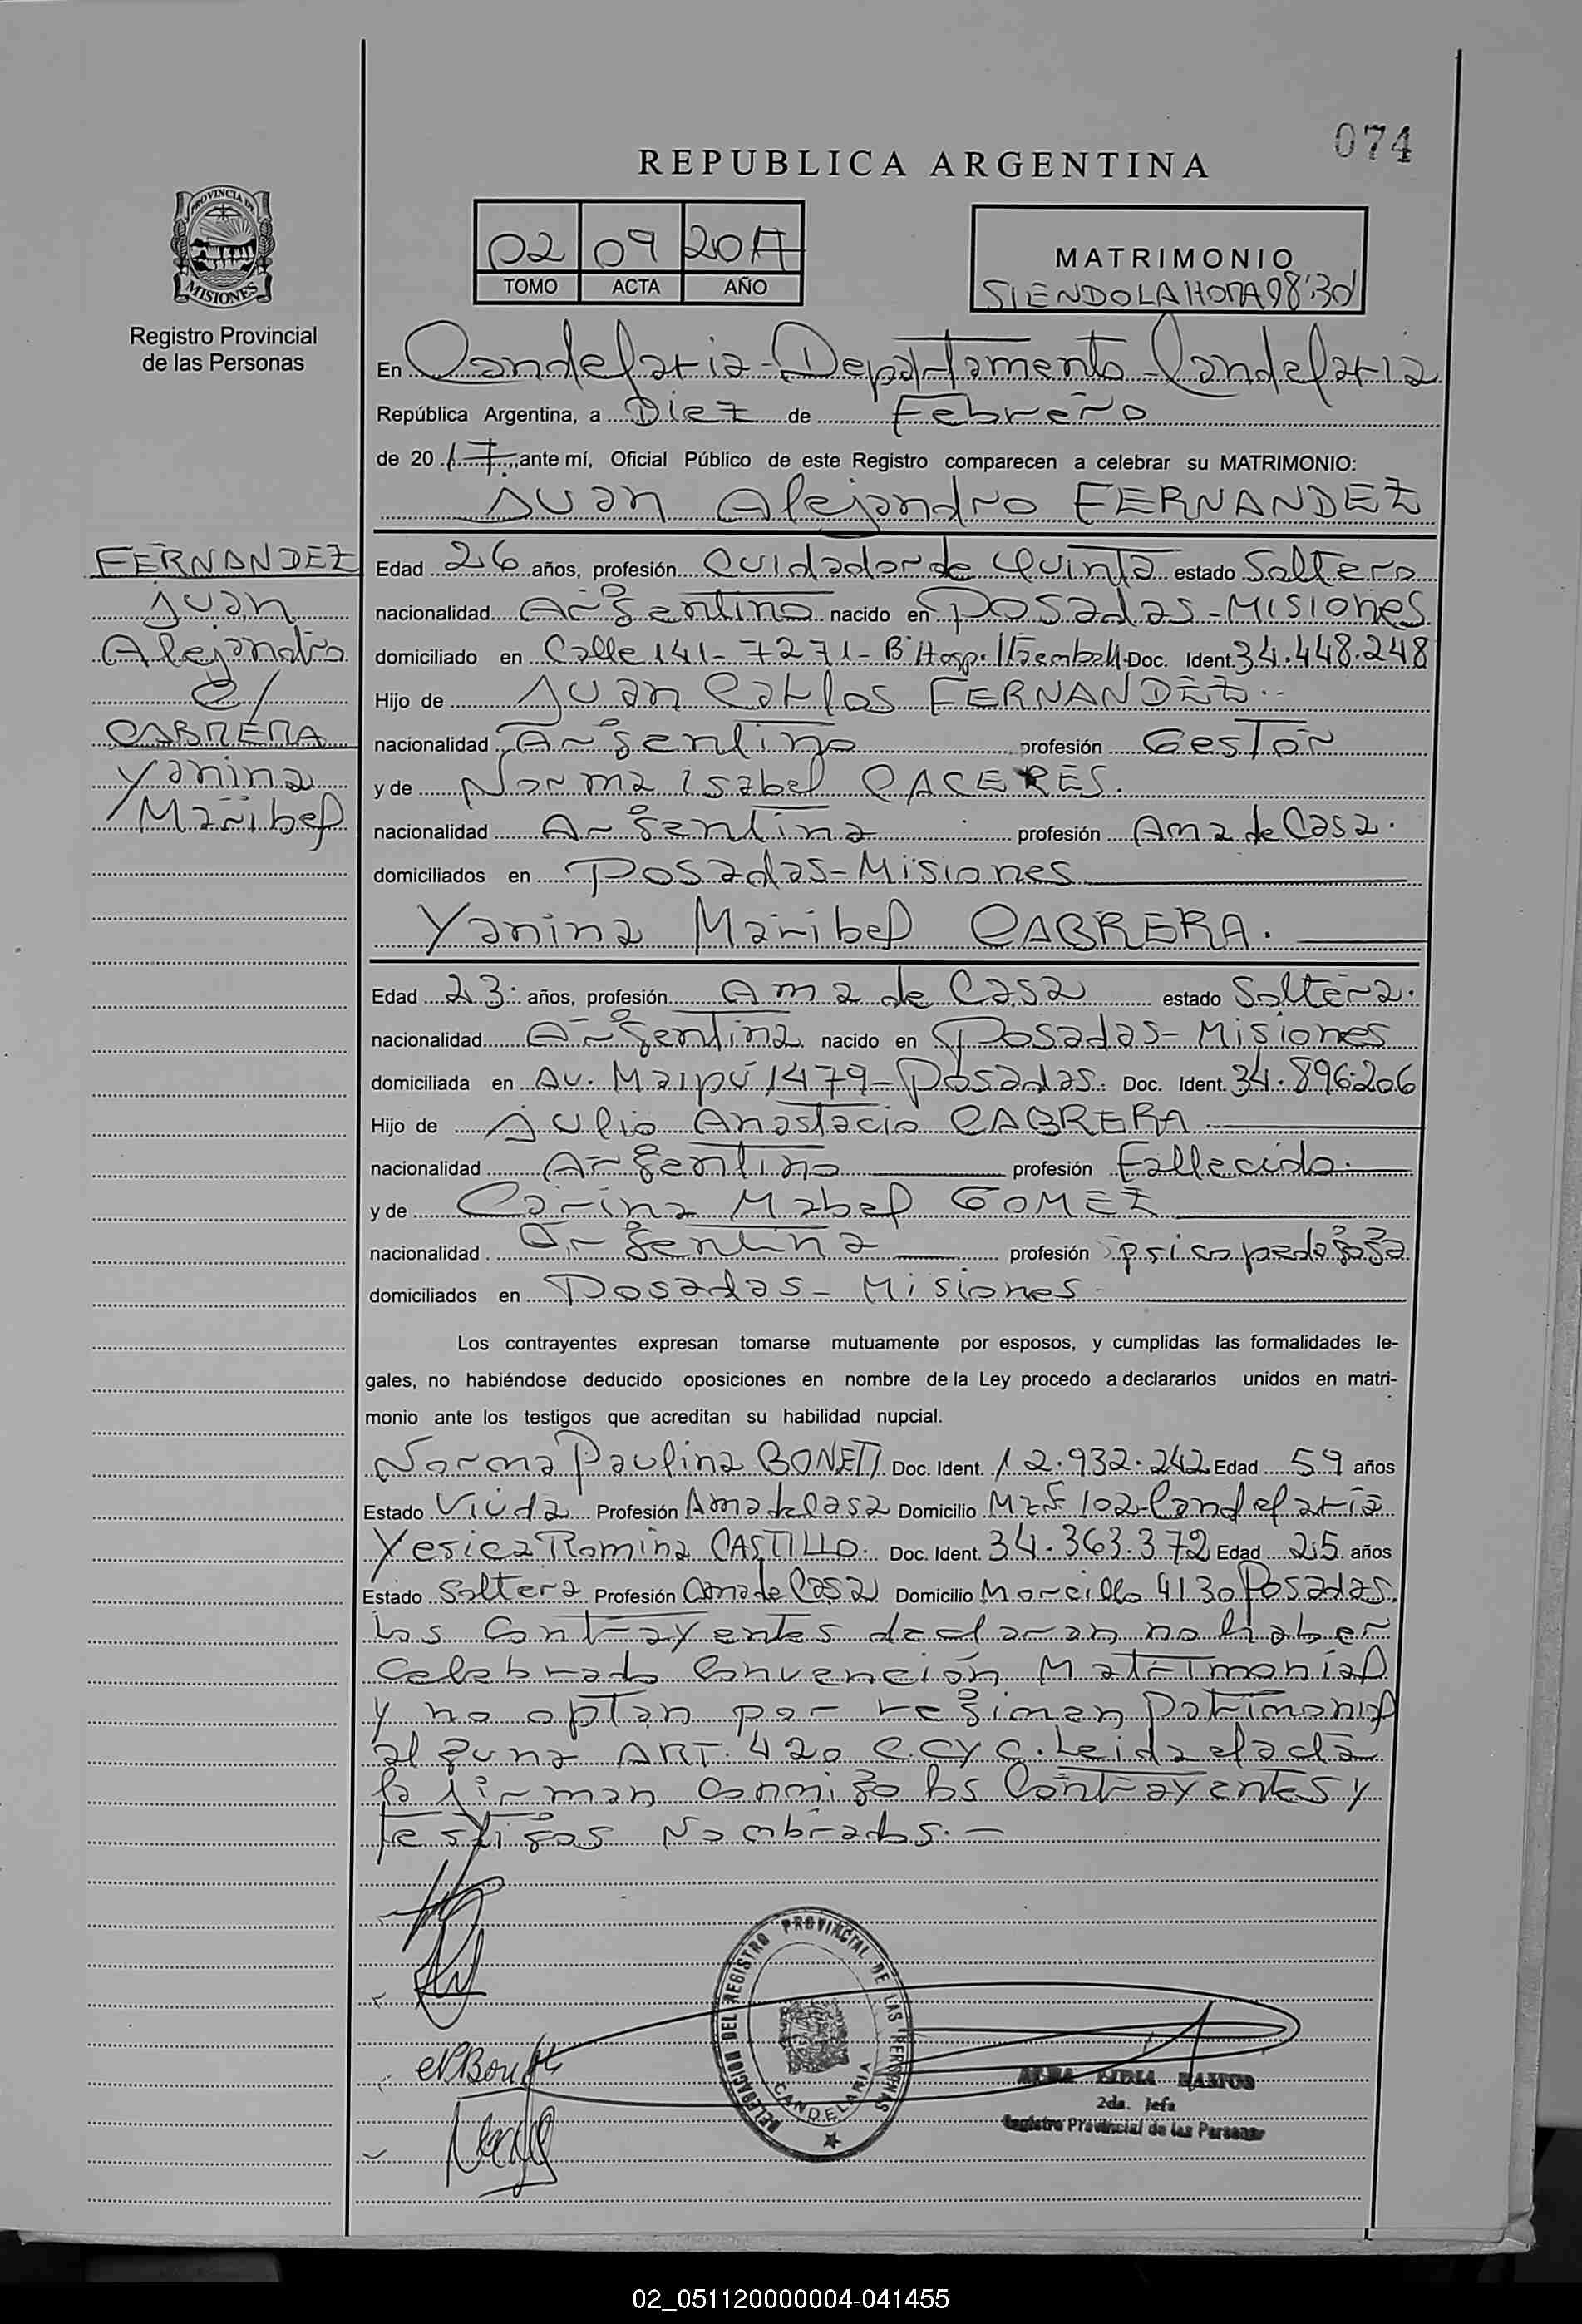 074
REPUBLICA ARGENTINA
PROVINCIA DE
MISIONES
Registro Provincial
de las Personas
02 09 2017
TOMO ACTA AÑO
MATRIMONIO
SIENDO LA HORA 08:30
En Candelaria - Departamento Candelaria
República Argentina, a Diez de Febrero
de 20 17, ante mí, Oficial Público de este Registro comparecen a celebrar su MATRIMONIO:
Juan Alejandro FERNANDEZ
FERNANDEZ
Juan
Alejandro
c/
CABRERA
Yanina
Maribel
Edad 26 años, profesión Cuidador de Quinta estado Soltero
nacionalidad Argentino nacido en Posadas - Misiones
domiciliado en Calle 141 - 7271 - Bº Hosp. Doc. Ident. 34.448.248
Hijo de Juan Carlos FERNANDEZ
nacionalidad Argentino profesión Gestor
y de Norma Isabel CACERES.
nacionalidad Argentina profesión Ama de Casa.
domiciliados en Posadas - Misiones
Yanina Maribel CABRERA.
Edad 23 años, profesión Ama de Casa estado Soltera.
nacionalidad Argentina nacido en Posadas - Misiones
domiciliada en Av. Maipú 1479 - Posadas. Doc. Ident. 34.896.206
Hijo de Julio Anastacio CABRERA
nacionalidad Argentino profesión Fallecido.
y de Carina Mabel GOMEZ
nacionalidad Argentina profesión psicopedagoga
domiciliados en Posadas - Misiones
Los contrayentes expresan tomarse mutuamente por esposos, y cumplidas las formalidades le-
gales, no habiéndose deducido oposiciones en nombre de la Ley procedo a declararlos unidos en matri-
monio ante los testigos que acreditan su habilidad nupcial.
Norma Paulina BONETTI Doc. Ident. 12.932.242 Edad 59 años
Estado Viuda Profesión Ama de Casa Domicilio 102 - Candelaria
Yesica Romina CASTILLO. Doc. Ident. 34.363.372 Edad 25 años
Estado Soltera Profesión Ama de Casa Domicilio Morcillo 4130 Posadas.
Los Contrayentes declaran no haber
Celebrado Convención Matrimonial
y no optan por regimen Patrimonial
alguna ART. 420 C.CyC. Leida el acta
la firman conmigo los Contrayentes y
testigos Nombrados. -
DELEGACION DEL REGISTRO PROVINCIAL DE LAS PERSONAS
CANDELARIA
2da. Jefa
Registro Provincial de las Personas
02_051120000004-041455